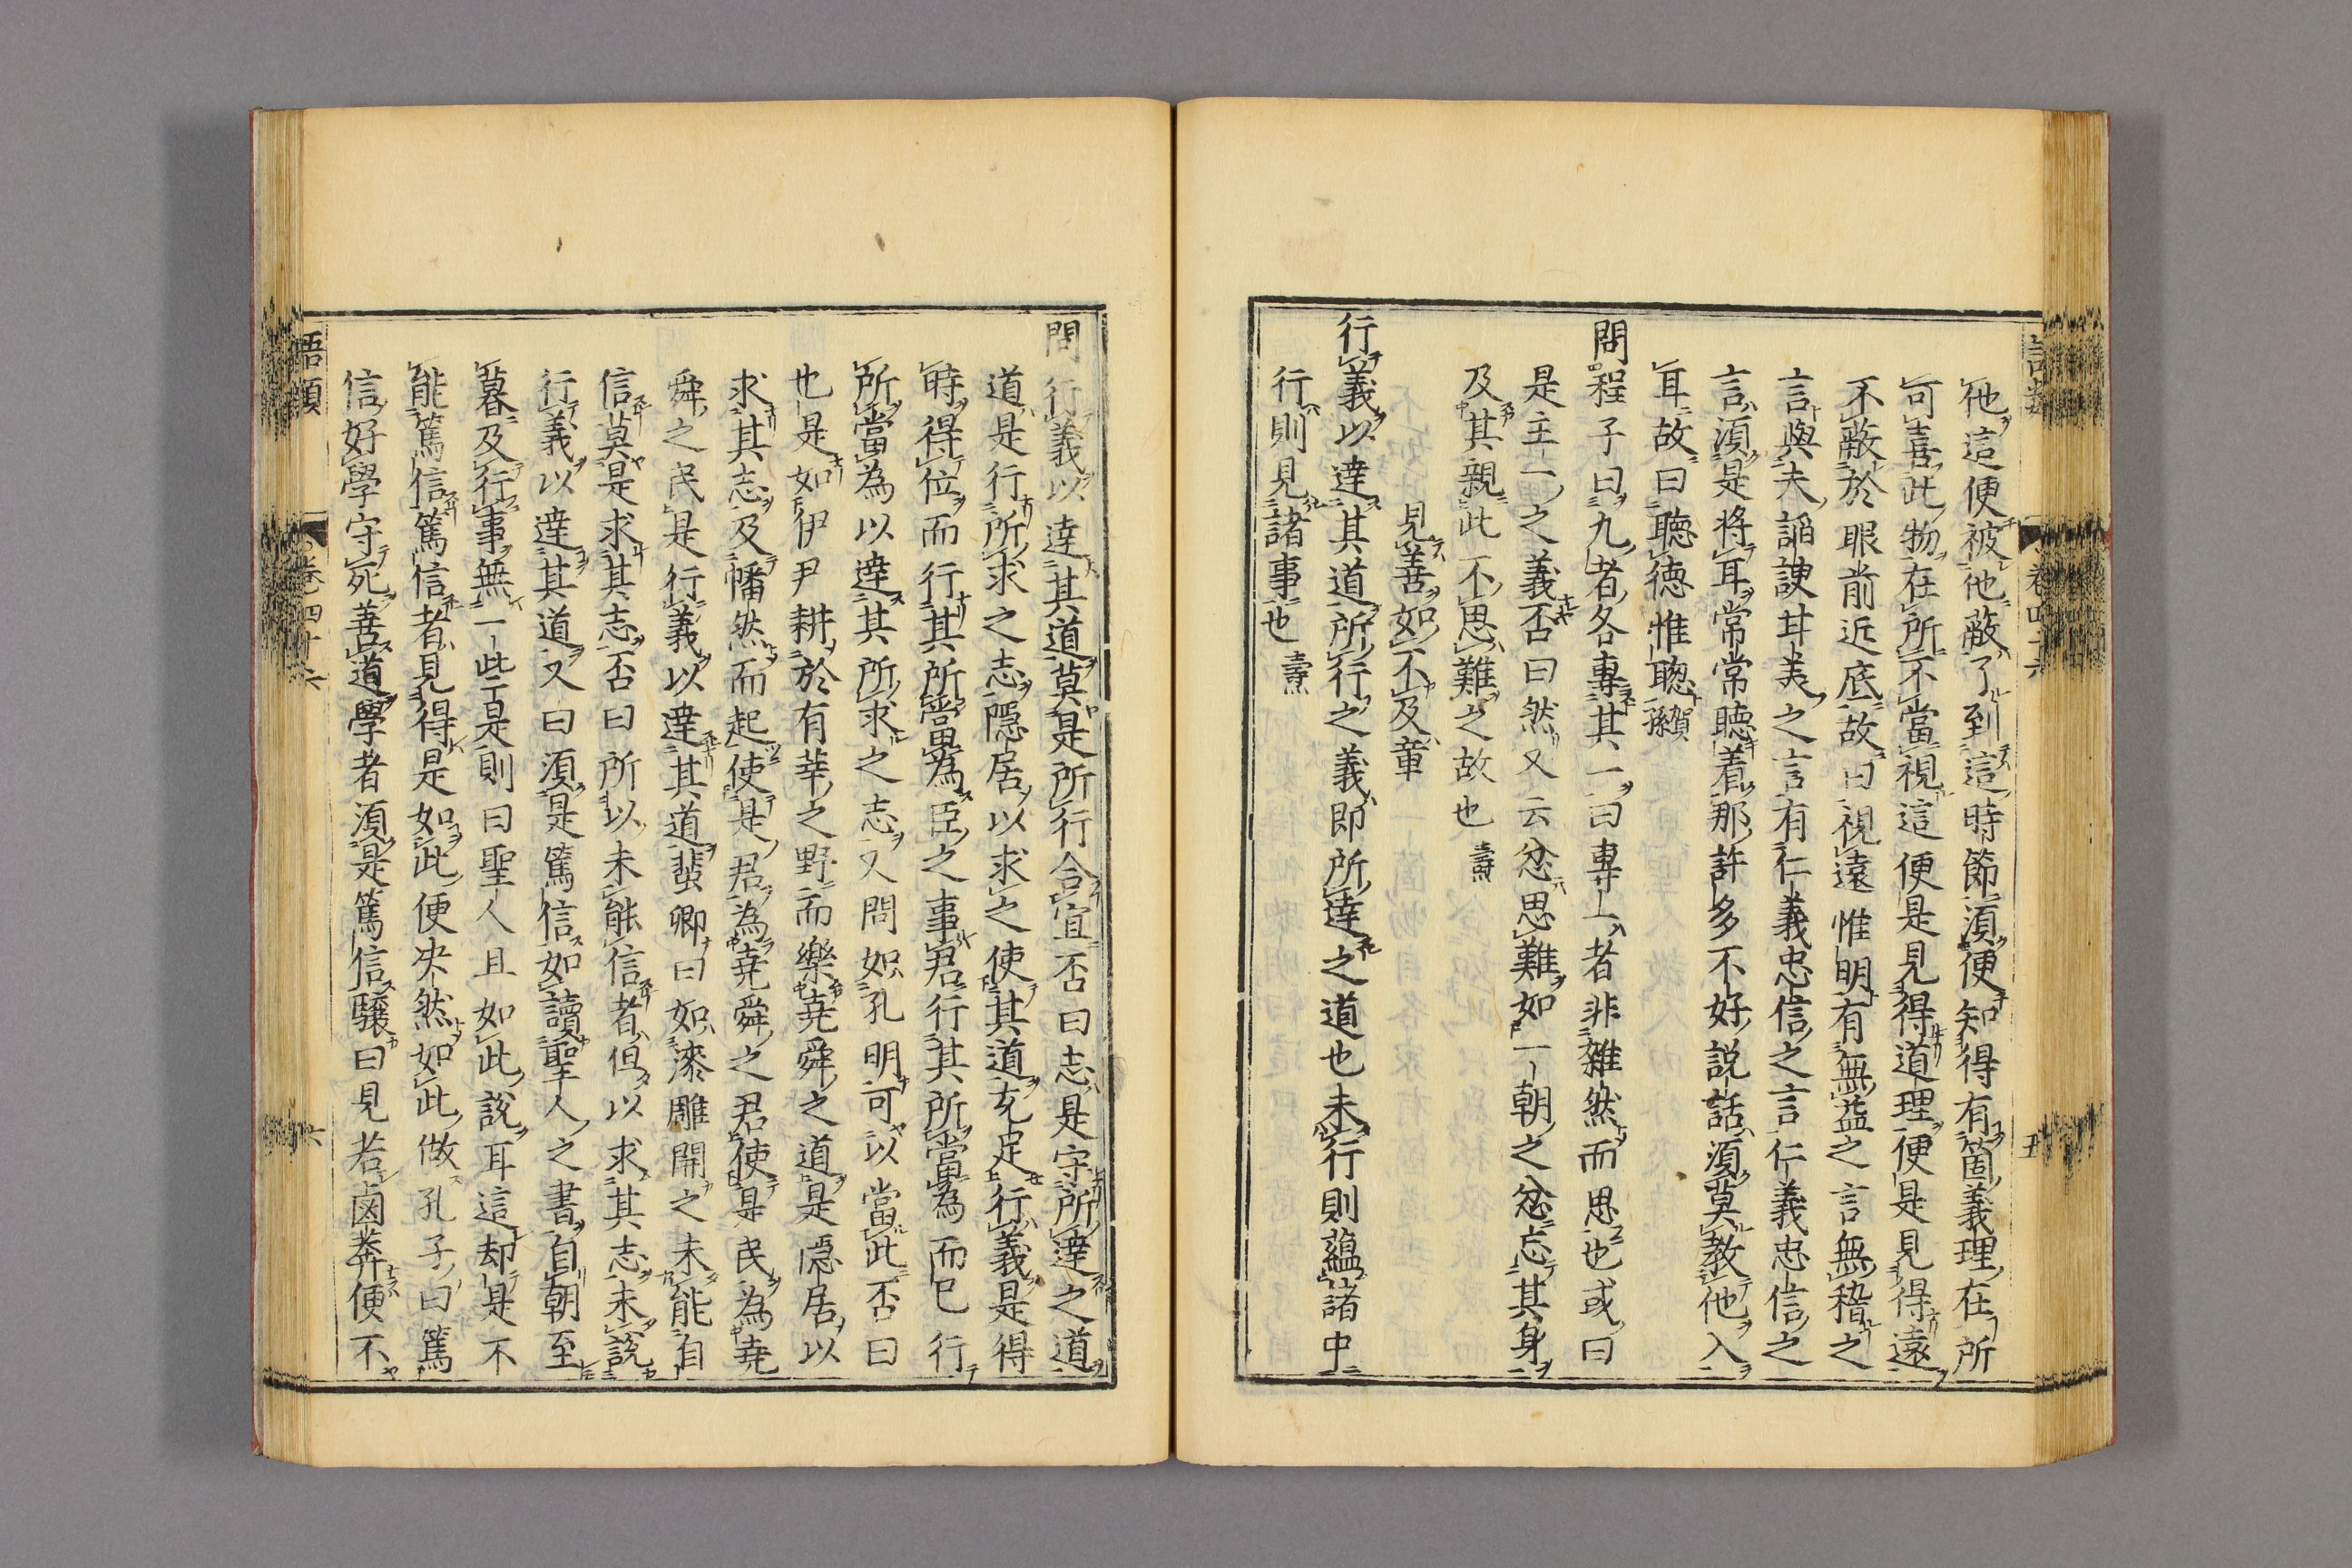 他這便被他蔽了到這時節須便知得有箇義理在所
可喜此物在所不當視這便是見得道理便是見得遠
不蔽於眼前近底故曰視遠惟明有無益之言無稽之
言與夫謟諛甘美之言有仁義忠信之言仁義忠信之
言須是将耳常常聴着那許多不好説話須莫教他入
耳故曰聴徳惟聰 賀孫
問程子曰九者各専其一曰専一者非雑然而思也或曰
是主一之義否曰然又云忿思難如一朝之忿忘其身
及其親此不思難之故也 燾
見善如不及章
行義以達其道所行之義即所達之道也未行則蘊諸中
行則見諸事也 燾
問行義以達其道莫是所行合宜否曰志是守所達之道
道是行所求之志隱居以求之使其道充足行義是得
時得位而行其所當為臣之事君行其所當為而已行
所當為以達其所求之志又問如孔明可以當此否曰
也是如伊尹耕於有莘之野而樂堯舜之道是隱居以
求其志及幡然而起使是君為堯舜之君使是民為堯
舜之民是行義以達其道蜚卿曰如漆雕開之未能自
信莫是求其志否曰所以未能信者但以求其志未說
行義以達其道又曰須是篤信如讀聖人之書自朝至
暮及行事無一些是則曰聖人且如此說耳這却是不
能篤信篤信者見得是如此便决然如此做孔子曰篤
信好學守死善道學者須是篤信驤曰見若鹵莽便不
語類
卷四十六
六